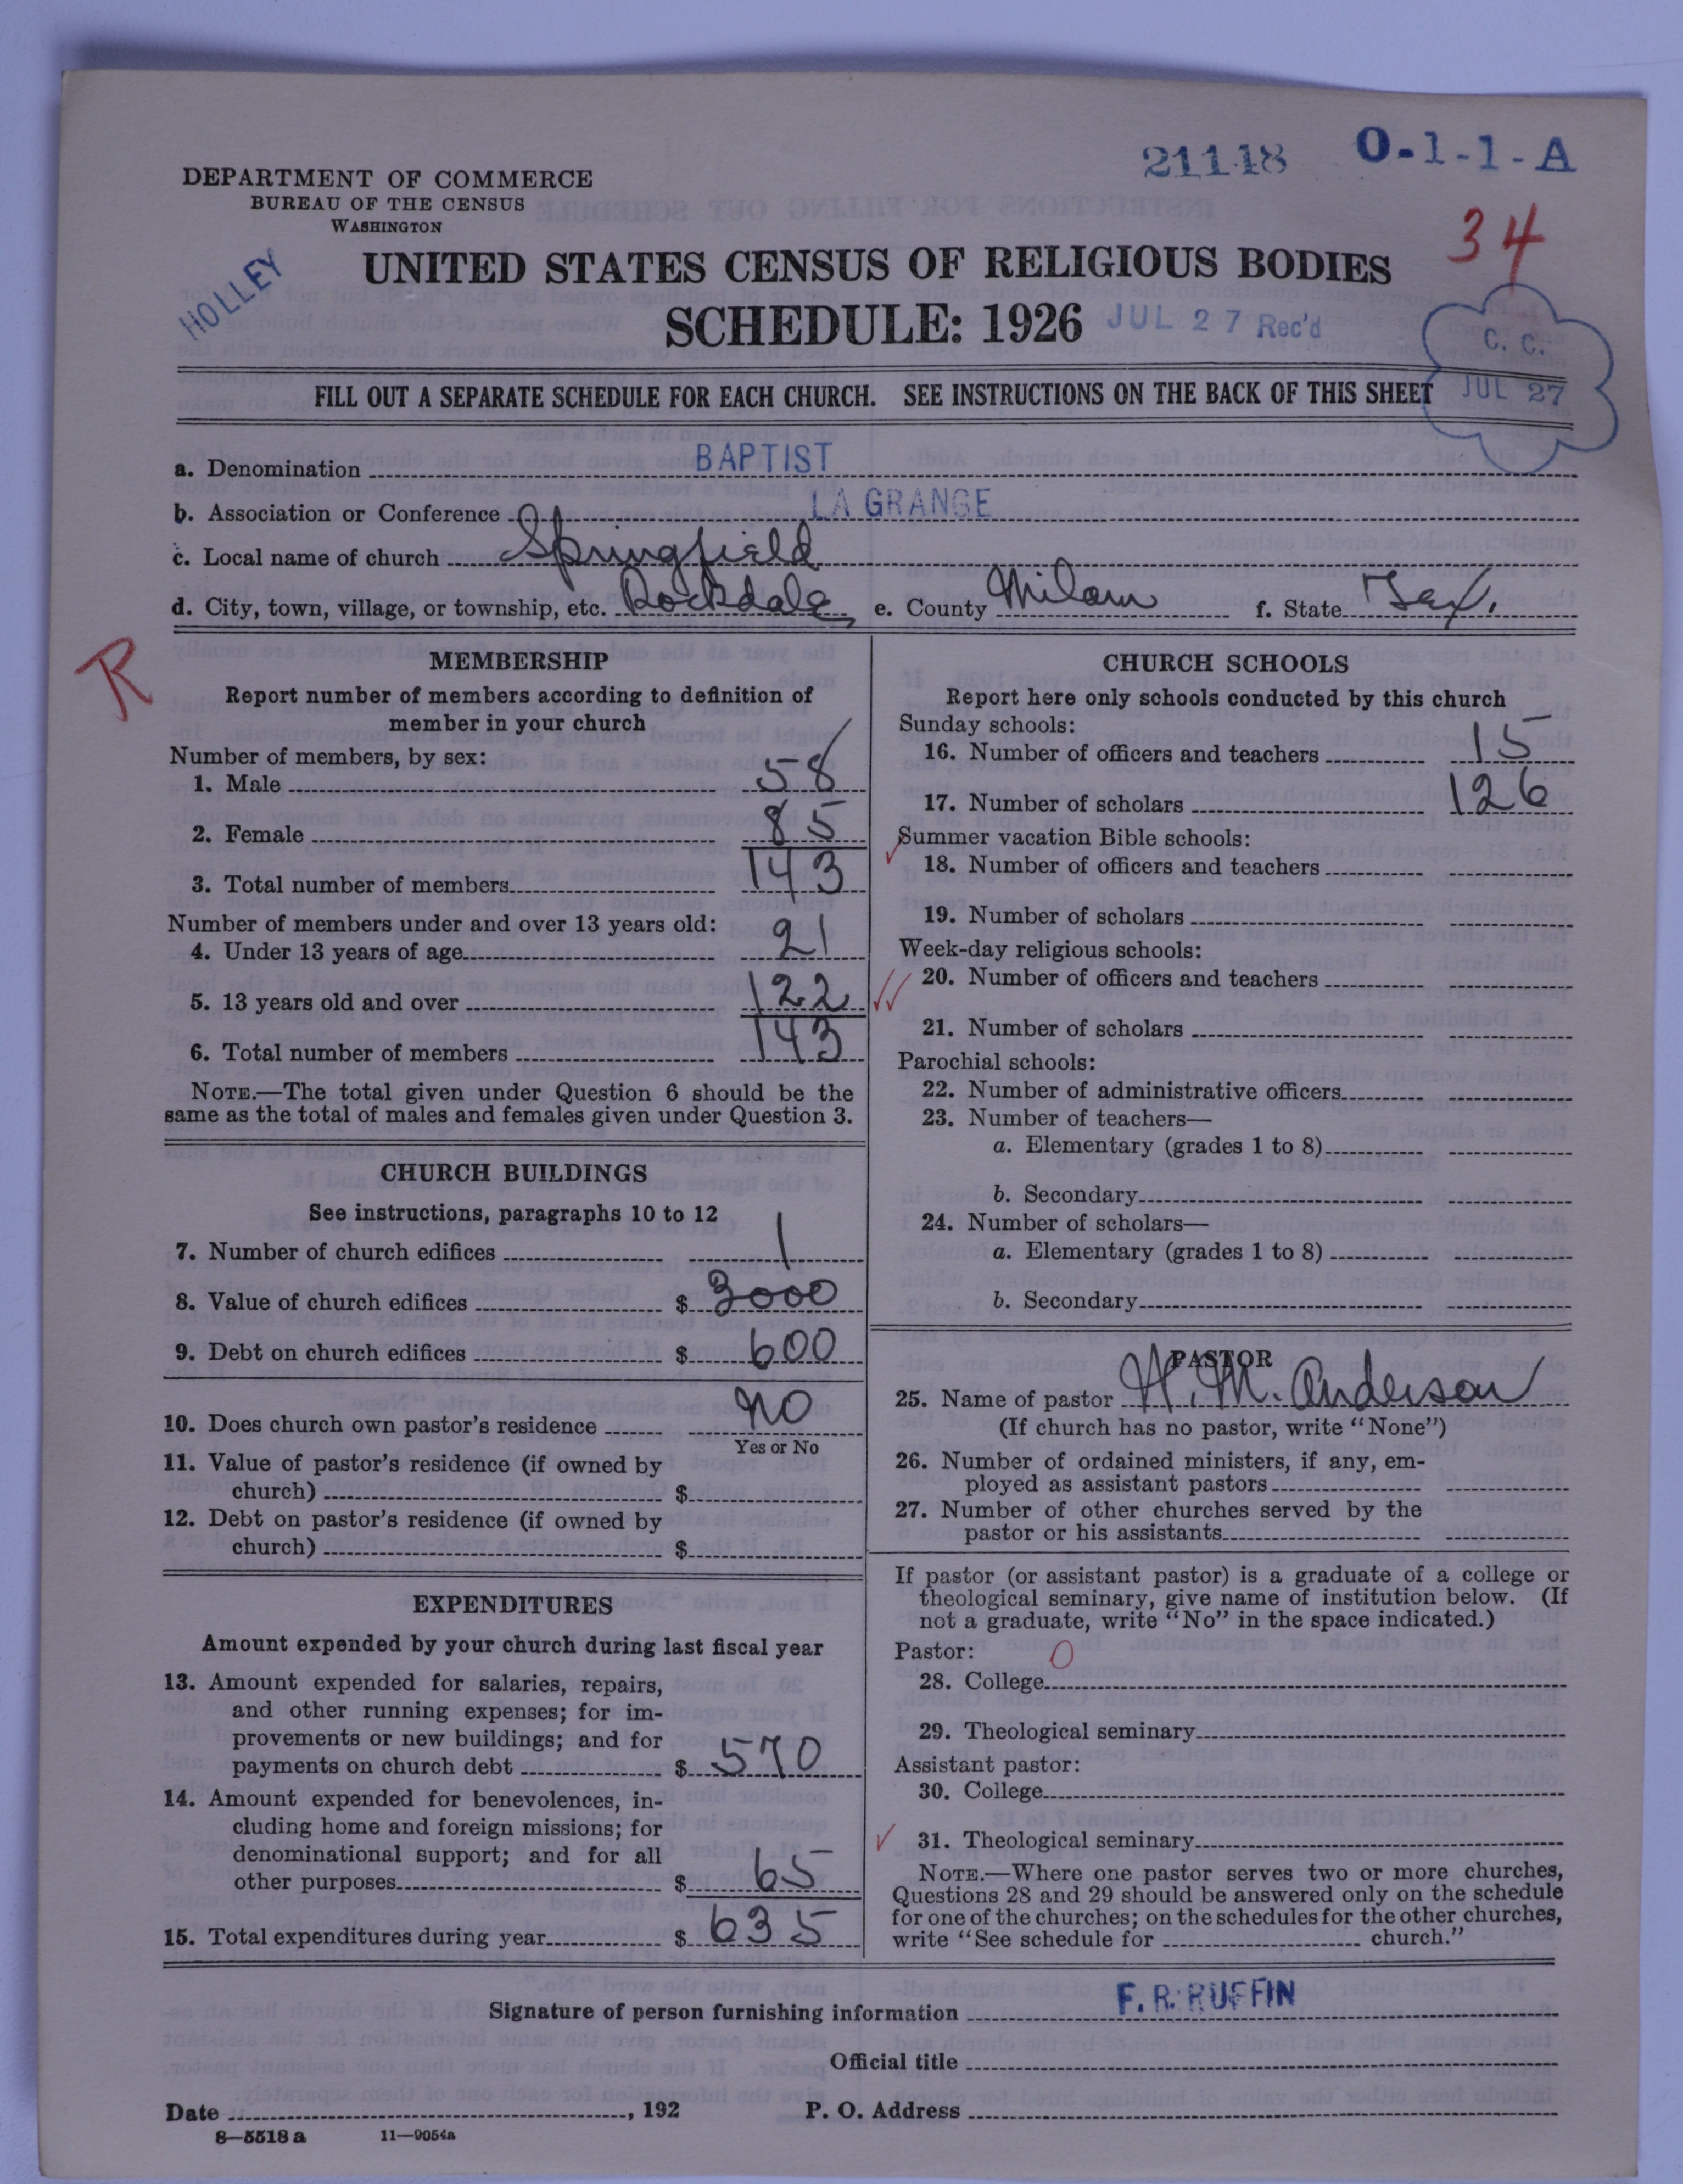 21118 O-1-1-A
DEPARTMENT OF COMMERCE
BUREAU OF THE CENSUS
WASHINGTON
34
HOLLEY
UNITED STATES CENSUS OF RELIGIOUS BODIES
SCHEDULE: 1926 JUL 27 Rec'd
C. C.
JUL 27
FILL OUT A SEPARATE SCHEDULE FOR EACH CHURCH. SEE INSTRUCTIONS ON THE BACK OF THIS SHEET
a. Denomination BAPTIST
b. Association or Conference LA GRANGE
c. Local name of church Springfield
d. City, town, village, or township, etc. Rockdale, e. County Milam f. State Tex.
R
MEMBERSHIP
Report number of members according to definition of
member in your church
Number of members, by sex:
1. Male 58
2. Female 85
3. Total number of members 143
Number of members under and over 13 years old:
4. Under 13 years of age 21
5. 13 years old and over 122
6. Total number of members 143
NOTE.—The total given under Question 6 should be the
same as the total of males and females given under Question 3.
CHURCH BUILDINGS
See instructions, paragraphs 10 to 12
7. Number of church edifices 1
8. Value of church edifices $ 3000
9. Debt on church edifices $ 600
10. Does church own pastor's residence NO
Yes or No
11. Value of pastor's residence (if owned by
church) $
12. Debt on pastor's residence (if owned by
church) $
EXPENDITURES
Amount expended by your church during last fiscal year
13. Amount expended for salaries, repairs,
and other running expenses; for im-
provements or new buildings; and for
payments on church debt $ 570
14. Amount expended for benevolences, in-
cluding home and foreign missions; for
denominational support; and for all
other purposes $ 65
15. Total expenditures during year $ 635
CHURCH SCHOOLS
Report here only schools conducted by this church
Sunday schools:
16. Number of officers and teachers 15
17. Number of scholars 126
Summer vacation Bible schools:
18. Number of officers and teachers
19. Number of scholars
Week-day religious schools:
20. Number of officers and teachers
21. Number of scholars
Parochial schools:
22. Number of administrative officers
23. Number of teachers—
a. Elementary (grades 1 to 8)
b. Secondary
24. Number of scholars—
a. Elementary (grades 1 to 8)
b. Secondary
PASTOR
25. Name of pastor H. M. Anderson
(If church has no pastor, write "None")
26. Number of ordained ministers, if any, em-
ployed as assistant pastors
27. Number of other churches served by the
pastor or his assistants
If pastor (or assistant pastor) is a graduate of a college or
theological seminary, give name of institution below. (If
not a graduate, write "No" in the space indicated.)
Pastor: 0
28. College
29. Theological seminary
Assistant pastor:
30. College
31. Theological seminary
NOTE.—Where one pastor serves two or more churches,
Questions 28 and 29 should be answered only on the schedule
for one of the churches; on the schedules for the other churches,
write "See schedule for church."
Signature of person furnishing information F. R. RUFFIN
Official title
Date , 192 P. O. Address
8—5518 a 11—9054a